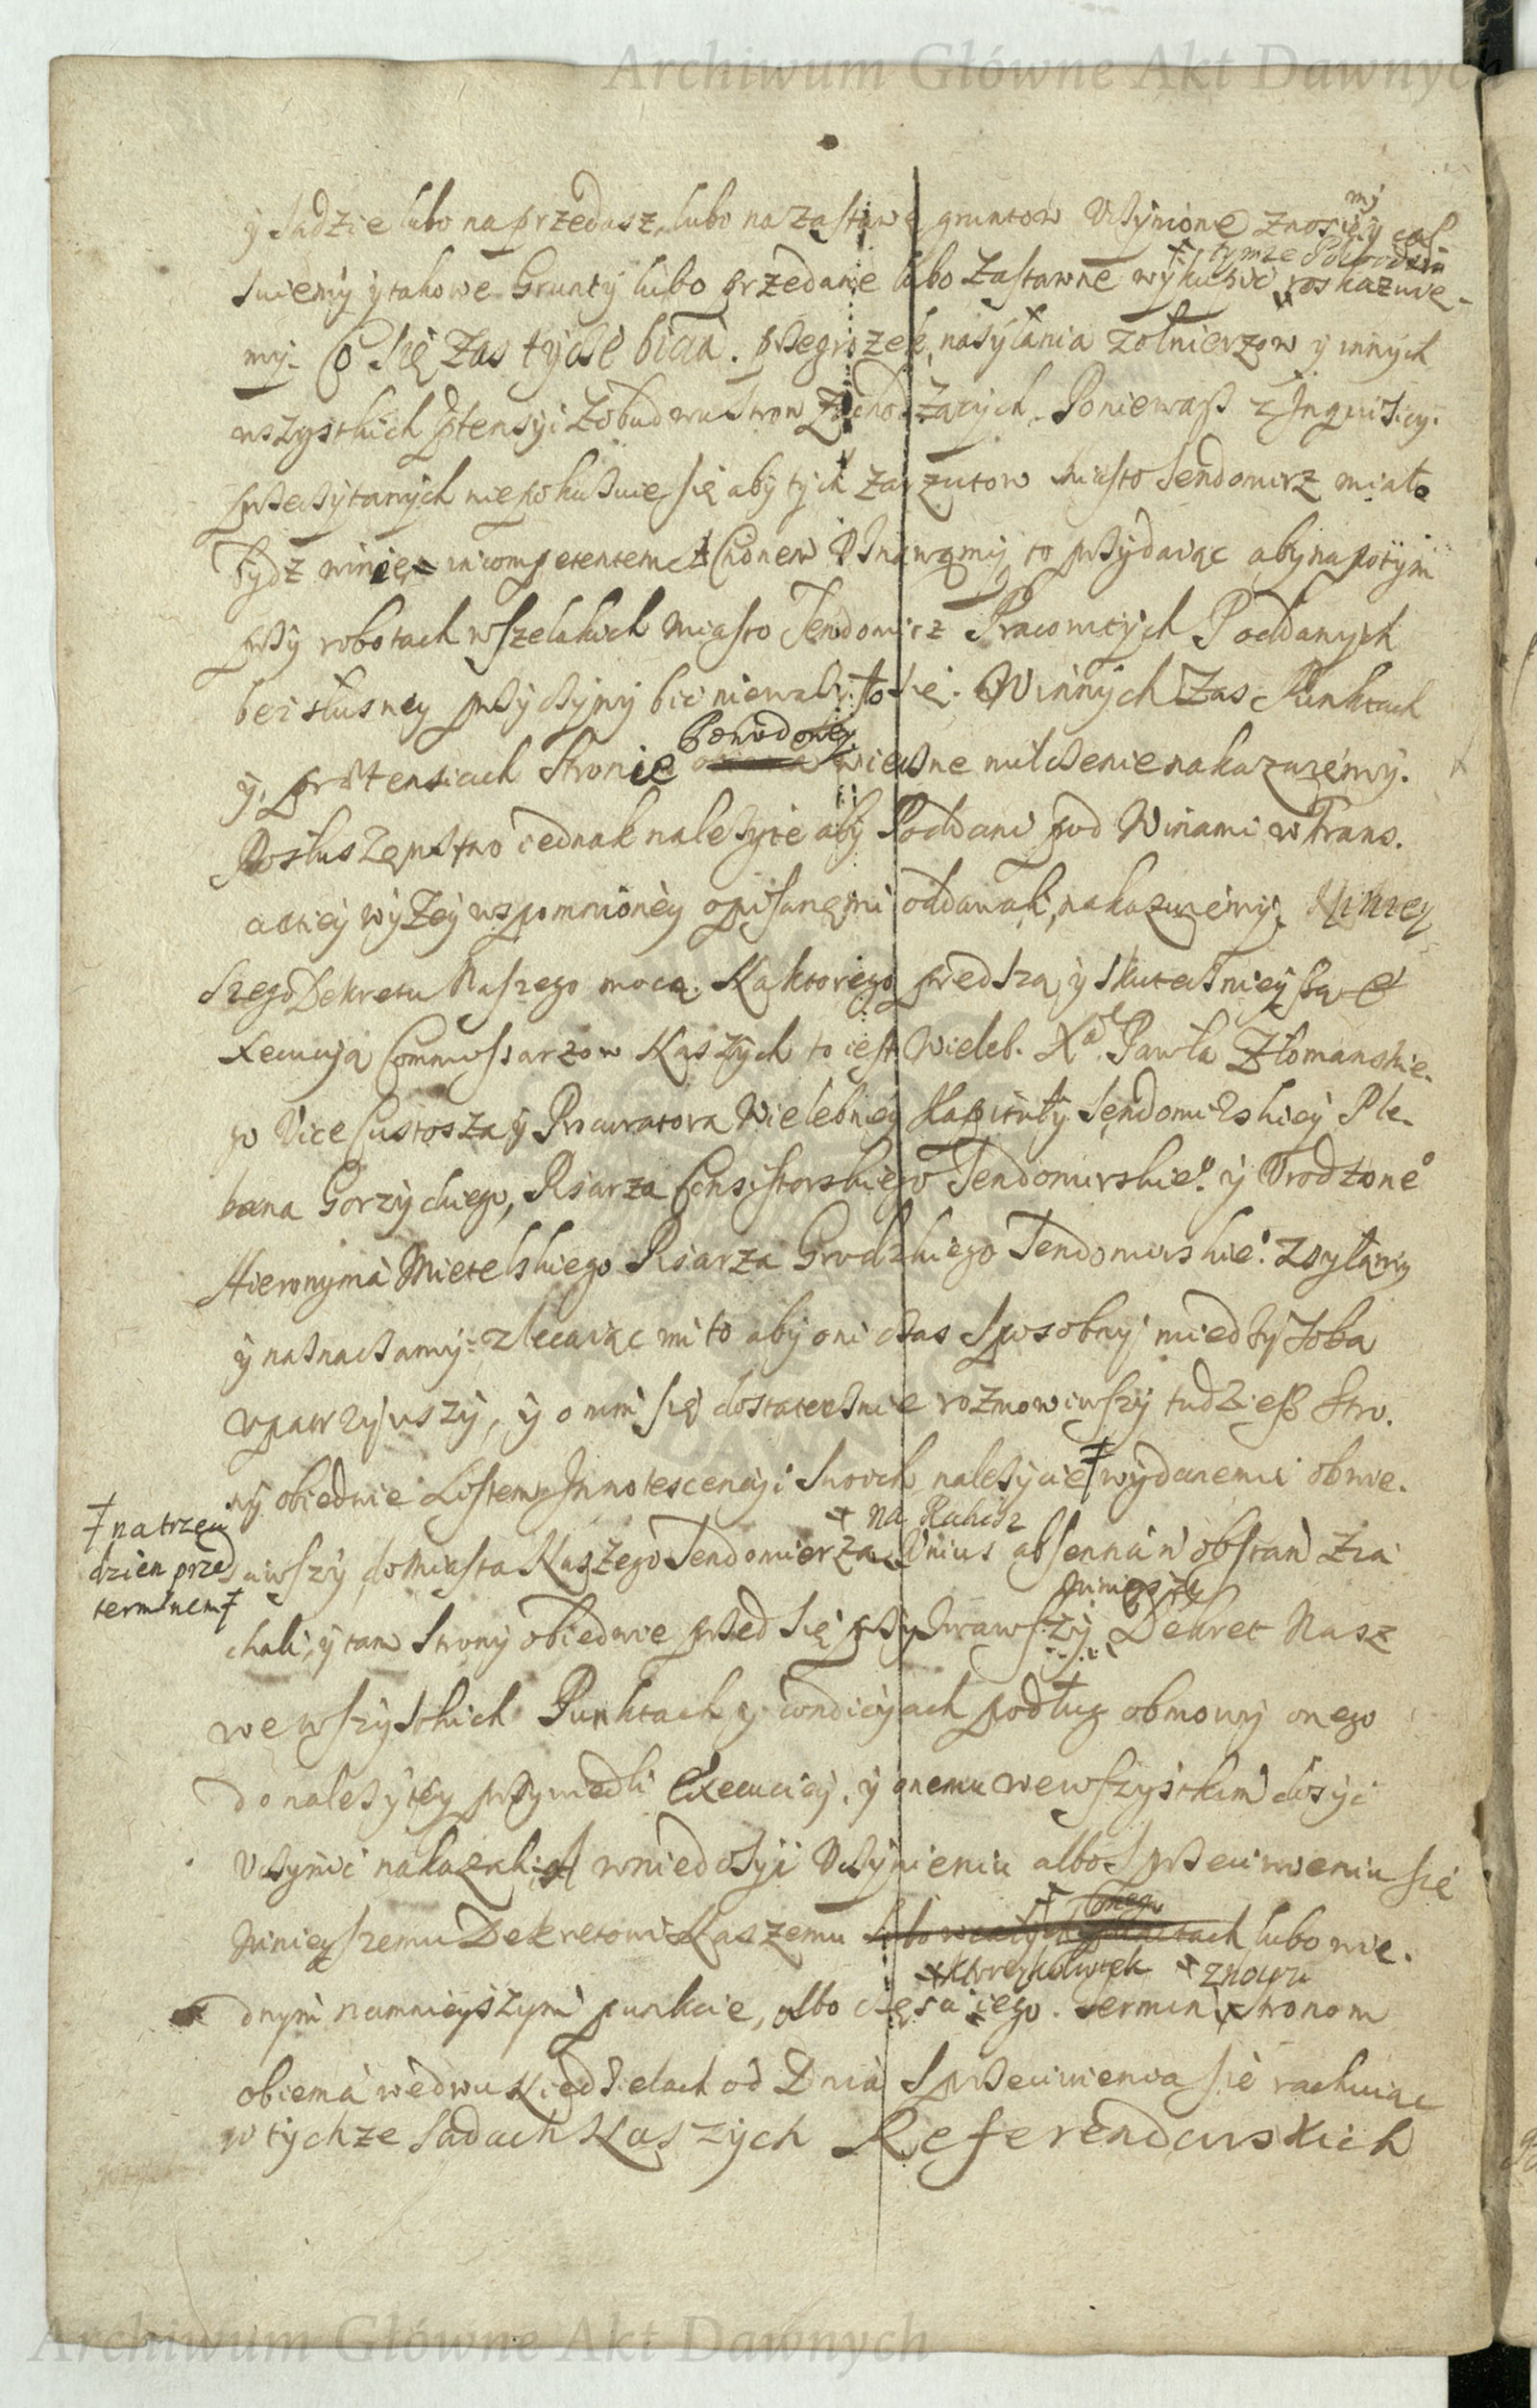 Archiwum Główne Akt Dawnych
y sadzie lubo na przedasz, lubo na zastawę gruntow uczynione znosiemy y cas-
† tymze Poddanym
suiemy y takowe Grunty lubo przedane lubo zastawne wykupić roskazuie-
my. Co się zas tycze bicia. przegrozek, nasyłania zołnierzow y innych
wszystkich ptensyi z obudwu stron zachodzących. Poniewasz z Inquisicy.
przeczytanych niepokazuie się aby tych zarzutow miasto Sendomirz miało
bydz winię incompetentem Actionem uznawamy, to przydaiąc aby napotym
przy robotach wszelakich Miasto Sendomirz Pracowitych Poddanych
bez słusney przyczyny bić nieważyło się. W innych zas Punktach
Powodowey
y prætensiach stronie wieczne milczenie nakazuiemy.
Posłuszęnstwo iednak nalezyte aby Poddani pod Winami w Trans-
actiey wyzey wspomnioney opisanęmi oddawali, nakazuiemy. Niniey-
szego Dekretu Naszego mocą. Na ktorego prędszą y skutecznieyszą E-
xecucyą Commissarzow Naszych to iest Wieleb. Xa. Pawła Złomanskie-
go Vice Custosza y Procuratora Wielebney Kapituły Sendomirskiey Ple-
bana Gorzyckiego, Pisarza Consistorskiego Sendomirskieº. y Urodzoneº
Hieronyma Mietelskiego Pisarza Grodzkiego Sendomirskieº. zsyłamy
y naznaczamy: zlecaiąc im to aby oni czas sposobny miedzy sobą
upatrzywszy, y o nim się dostatecznie rozmowiwszy tudziesz stro-
ny obiedwie Listem Innotescencyi swoich nalezycie † wydanemi obwie-
† na trzeci dzien przed terminem †
† na Ratusz
sciwszy do Miasta Naszego Sendomierza unius absentia non obstan. zia-
ninieyszy
chali, y tam strony obiedwie przed się przyzwawszy Dekret Nasz
we wszystkich Punktach y condicyach podług obmowy onego
do nalezytey przywiedli Execuciey, y onemu we wszystkim dosyć
uczynić nakazali. A w niedosyć uczynieniu albo sprzeciwieniu się
ninieyszemu Dekretowi Naszemu lubo w całych punctach lubo wie-
† ktorezkolwiek † znowu
dnym namnieyszym punkcie, albo części iego. Termin stronom
obiema we dwu Niedzielach od Dnia sprzeciwienia się rachuiąc
w tychze Sadach Naszych Referendarskich
Archiwum Główne Akt Dawnych